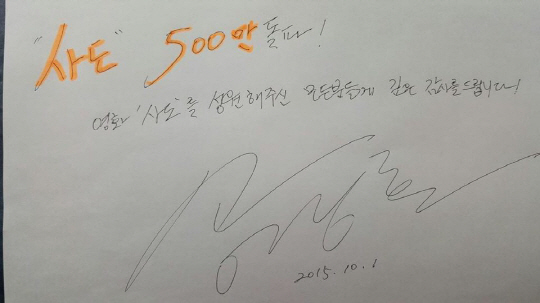 "사도" 500만 돌파!
영화 '사도'를 성원해주신 모든분들께 깊은 감사를드립니다!
2015.10.1